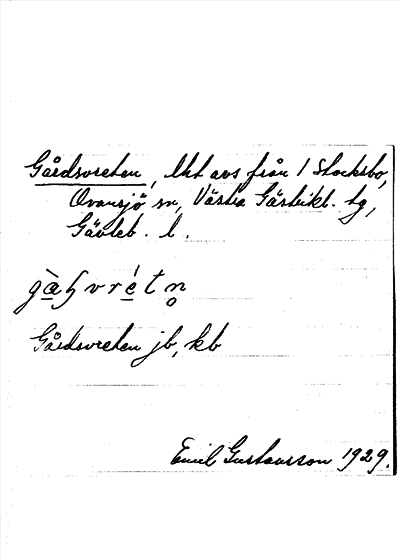 Gårdsvreten, lht avs från 1 Stocksbo,
Ovansjö sn, Västra Gästrikl. tg,
Gävleb. l.
gɑ̀ꞕvrét n̥
Gårdsvreten jb, kb
Emil Gustavsson 1929.